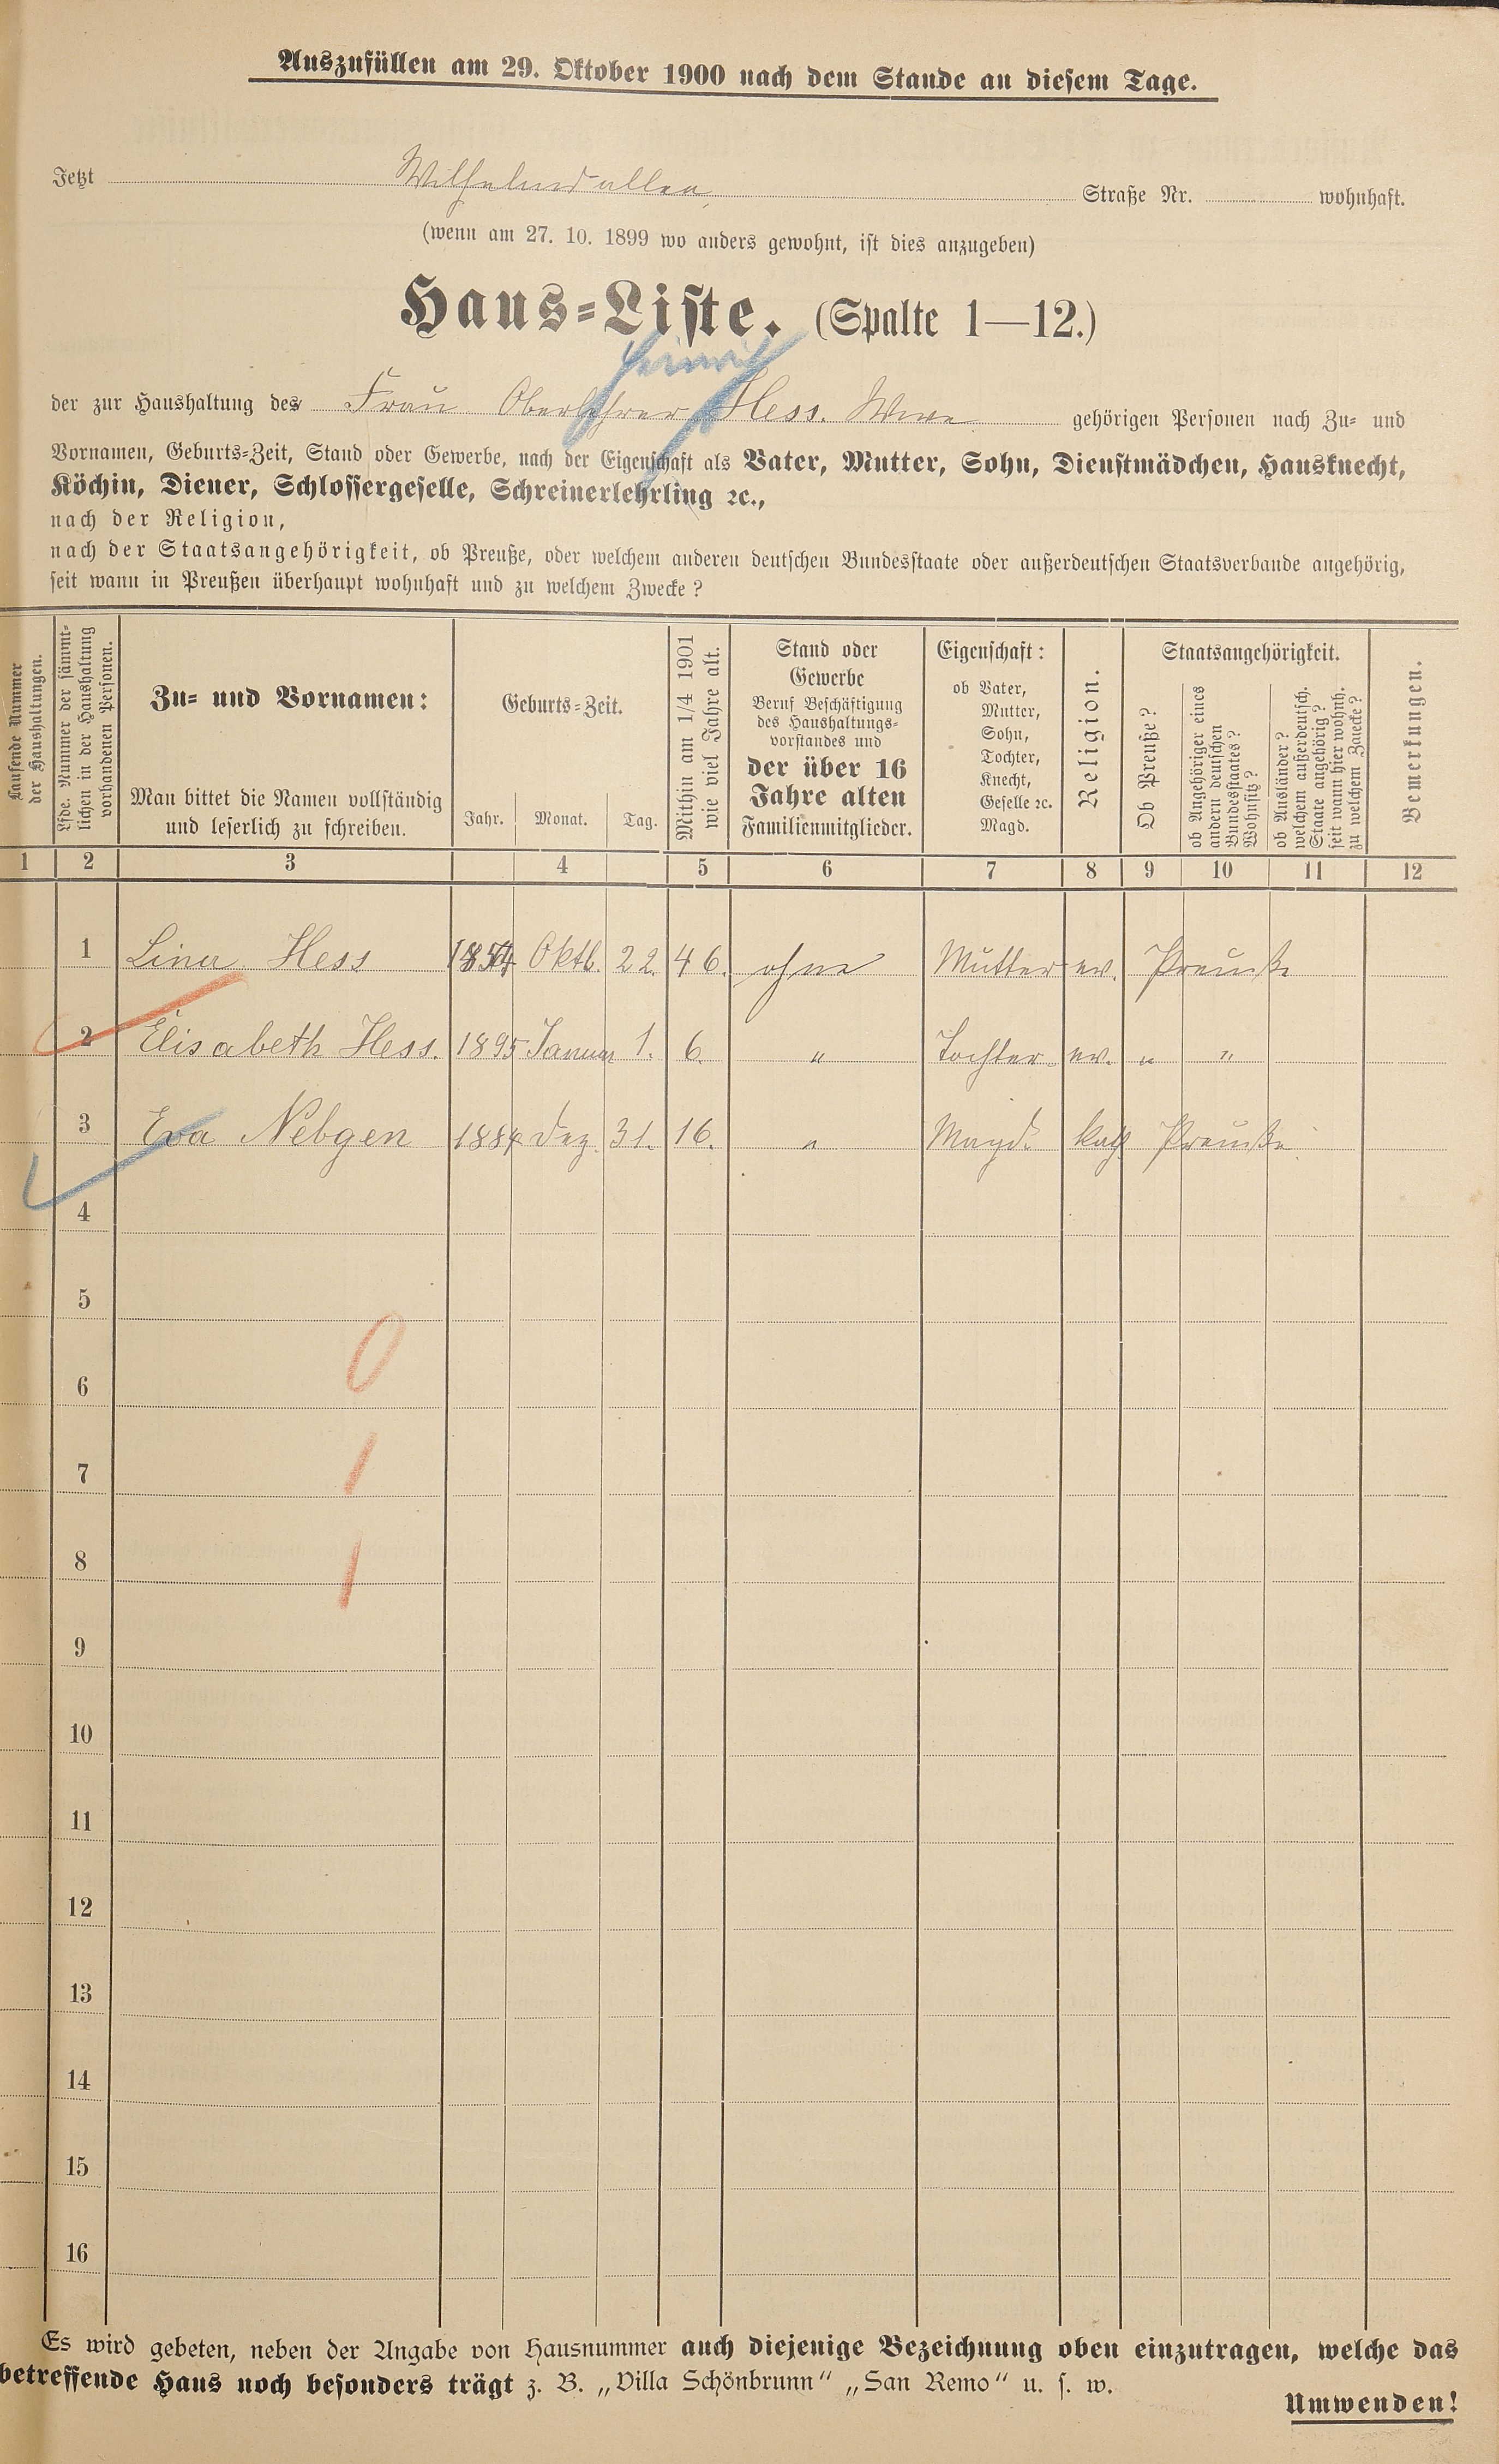 Auszufüllen am 29. Oktober 1900 nach dem Stande an diesem Tage.
Jetzt Wilhelmsallee Straße Nr. wohnhaft.
(wenn am 27. 10. 1899 wo anders gewohnt, ist dies anzugeben)
Haus-Liste. (Spalte 1—12.)
der zur Haushaltung des Frau Oberlehrer Hess. Wwe gehörigen Personen nach Zu- und
Vornamen, Geburts-Zeit, Stand oder Gewerbe, nach der Eigenschaft als Vater, Mutter, Sohn, Dienstmädchen, Hausknecht,
Köchin, Diener, Schlossergeselle, Schreinerlehrling ꝛc.,
nach der Religion,
nach der Staatsangehörigkeit, ob Preuße, oder welchem anderen deutschen Bundesstaate oder außerdeutschen Staatsverbande angehörig,
seit wann in Preußen überhaupt wohnhaft und zu welchem Zwecke?
Laufende Nummer
der Haushaltungen.
Lfde. Nummer der sämmt-
lichen in der Haushaltung
vorhandenen Personen.
Zu- und Vornamen:
Man bittet die Namen vollständig
und leserlich zu schreiben.
Geburts-Zeit.
Jahr. Monat. Tag.
Mithin am 1/4 1901
wie viel Jahre alt.
Stand oder
Gewerbe
Beruf Beschäftigung
des Haushaltungs-
vorstandes und
der über 16
Jahre alten
Familienmitglieder.
Eigenschaft:
ob Vater,
Mutter,
Sohn,
Tochter,
Knecht,
Geselle ꝛc.
Magd.
Religion.
Staatsangehörigkeit.
Ob Preuße?
ob Angehöriger eines
andern deutschen
Bundesstaates?
Wohnsitz?
ob Ausländer?
welchem außerdeutsch.
Staate angehörig?
seit wann hier wohnh.
zu welchem Zwecke?
Bemerkungen.
1 2 3 4 5 6 7 8 9 10 11 12
1 Liner Hess 1854 Oktb. 22. 46. ohne Mutter ev. Preuße
2 Elisabeth Hess. 1895 Januar 1. 6. " Tochter. ev. " "
3 Eva Nebgen 1884 Dez. 31. 16. " Magd. kath Preuße
4
5
0
6
7 1
8 1
9
10
11
12
13
14
15
16
Es wird gebeten, neben der Angabe von Hausnummer auch diejenige Bezeichnung oben einzutragen, welche das
betreffende Haus noch besonders trägt z. B. „Villa Schönbrunn“ „San Remo“ u. s. w.
Umwenden!